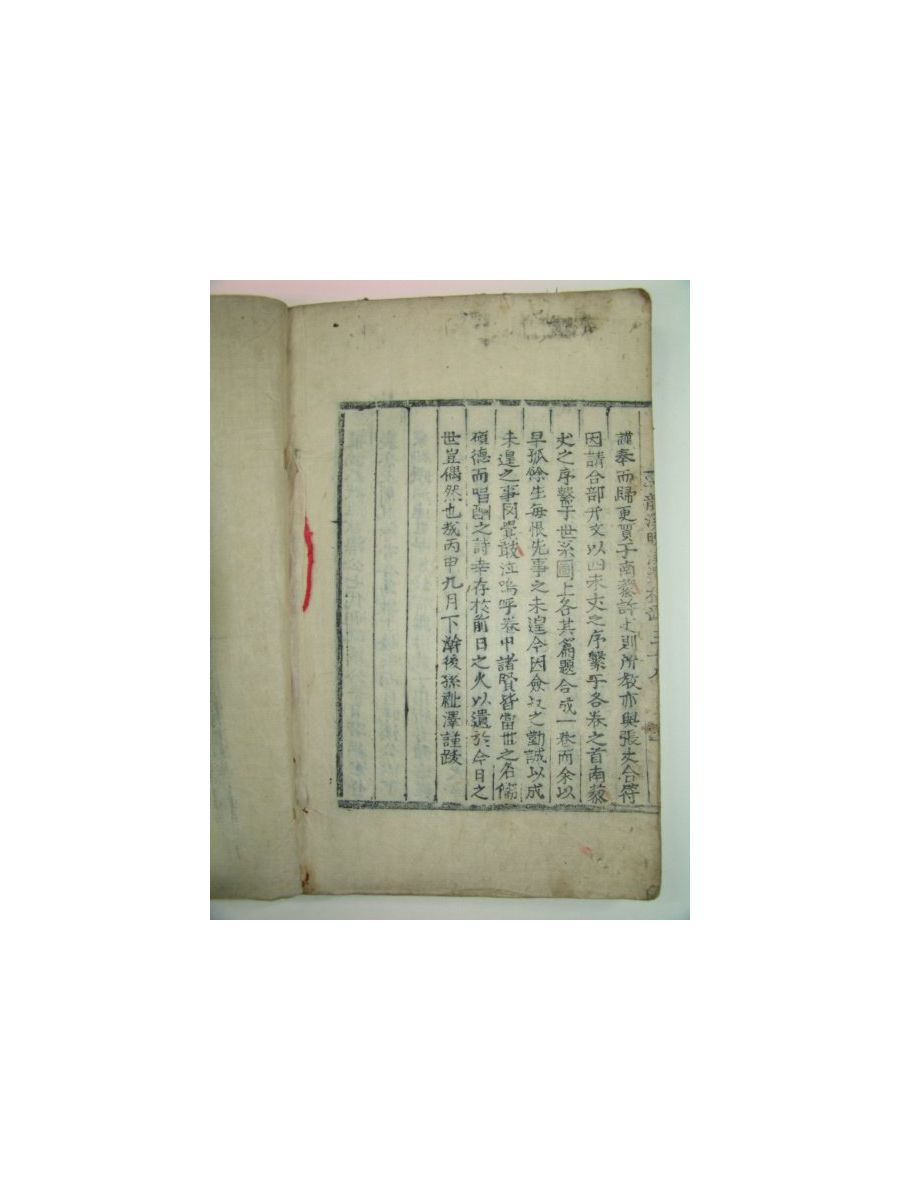 謹奉而歸更質于南藜許丈則所教亦與張丈合符
因請合部弁文以四未丈之序繫乎各卷之首南藜
丈之序繫于世系圖上各其篇題合成一卷而余以
早孤餘生每恨先事之未遑今因僉叔之勤誠以成
未遑之事因疊鼓泣嗚呼卷中諸賢皆當世之名儒
碩德而唱酬之詩幸存於前日之火以遺於今日之
世豈偶然也哉丙申九月下澣後孫祉澤謹跋